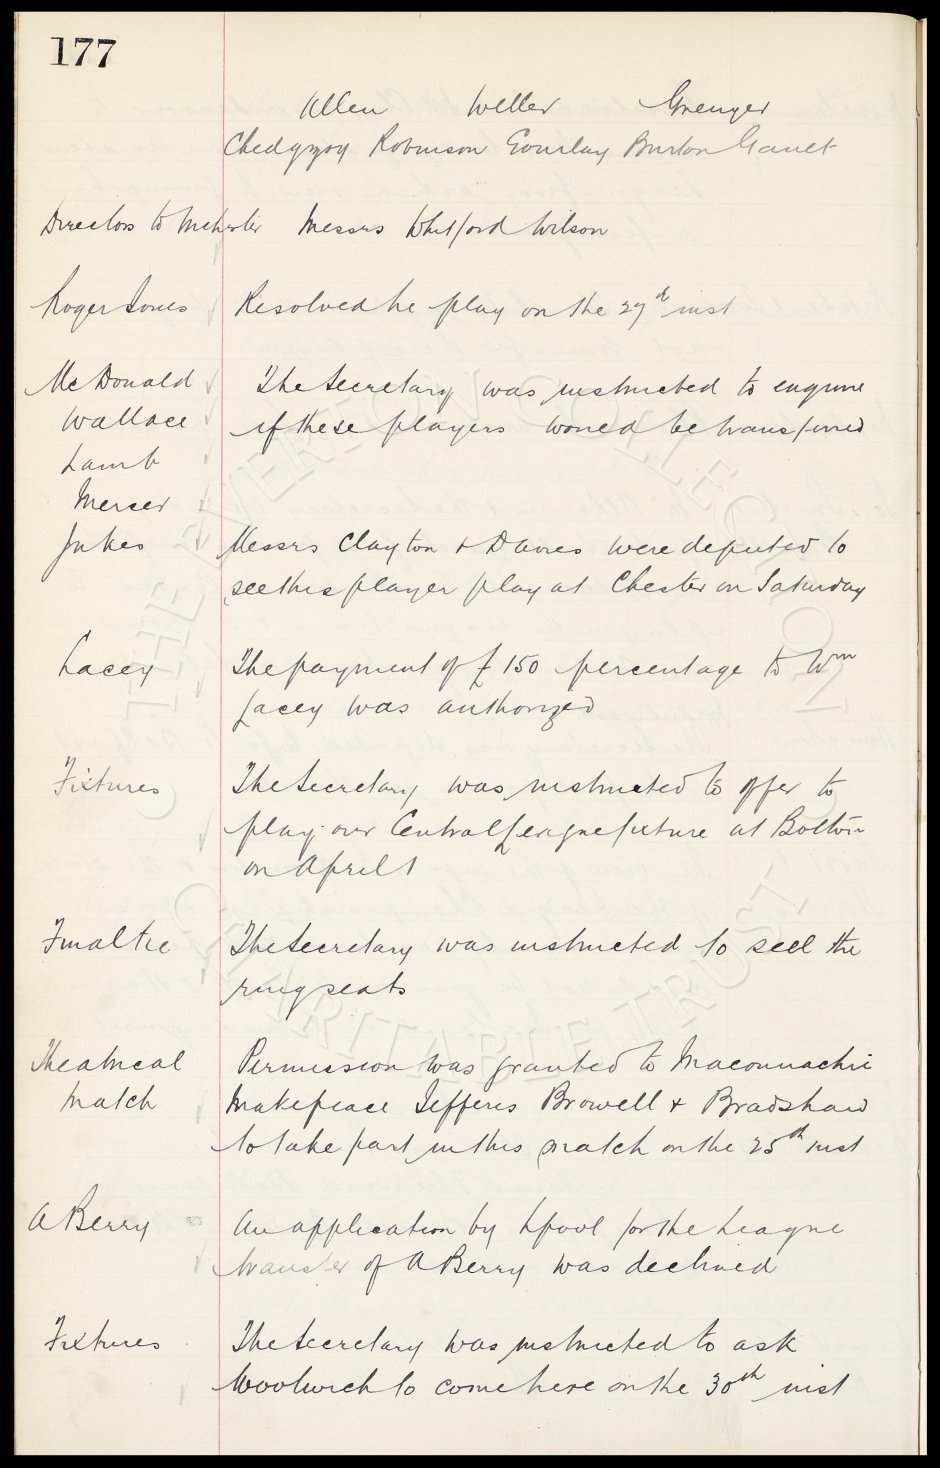 177
Allen Weller Grenyer
Chedgzoy Robinson Gourlay Burton Gault
Directors to Mchester Messrs Whitford Wilson
Roger Jones Resolved he play on the 27d inst
McDonald The Secretary was instructed to enquire
Wallace if these players would be transferred
Lamb
Mercer
Jukes Messrs Clayton & Davies were deputed to
see this player play at Chester on Saturday
Lacey The payment of £150 percentage to Wm
Lacey was authorized
Fixtures The Secretary was instructed to offer to
play our Central League fixture at Bolton
on April 1
Final tie The Secretary was instructed to sell the
ring seats
Theatrical Permission was granted to Maconnachie
Match Makepeace Jefferis Browell & Bradshaw
to take part in this match on the 25th inst
A Berry An application by Lpool for the League
transfer of A Berry was declined
Fixtures The Secretary was instructed to ask
Woolwich to come here on the 30th inst
THE EVERTON COLLECTION
CHARITABLE TRUST